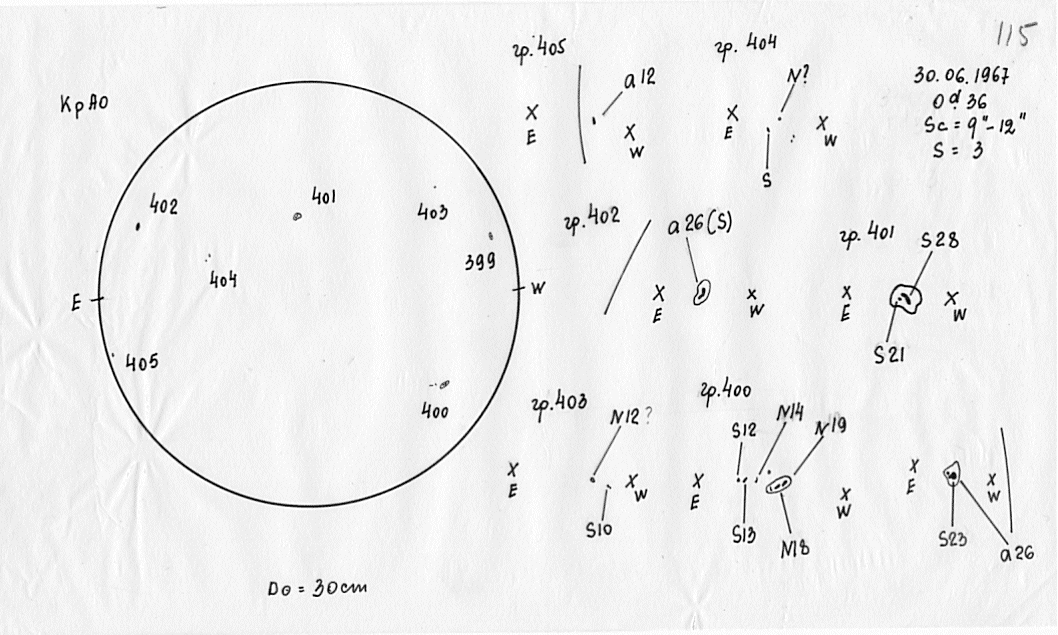 115
КрАО
30.06.1967
0ᵈ 36
Sc = 9"-12"
S = 3
402
401
403
404
399
E
W
405
400
D⊙ = 30cm
гр. 405
a12
X
E
X
W
гр. 404
N?
X
E
X
W
S
гр. 402
a26(S)
X
E
X
W
гр. 401
S28
X
E
X
W
S21
гр. 403
N12?
X
E
X
W
S10
гр. 400
S12
N14
N19
X
E
X
W
S13
N18
X
E
X
W
S23
a26